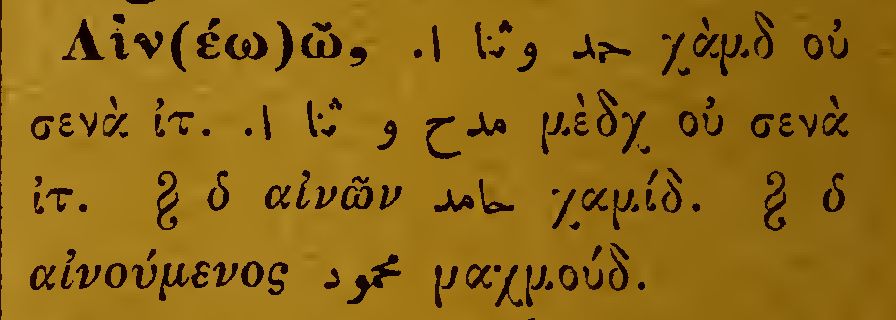 Αἰν(έω)ῶ, حمد و ثنا ا. χὰμδ οὐ
σενὰ ἰτ. مدح و ثنا ا. μὲδχ οὐ σενὰ
ἰτ. δ αἰνῶν حامد χαμίδ. δ
αἰνούμενος محمود μαχμούδ.